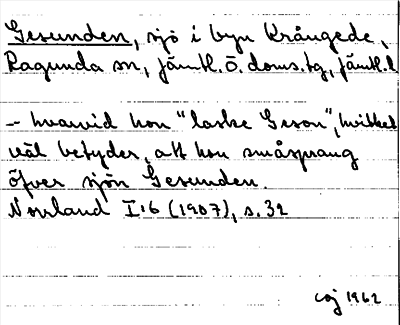 Gesunden, sjö i byn Krångede,
Ragunda sn, Jämtl. ö. doms.bg, Jämtl. l
– hvarvid hon "laske Geson", hvilket
väl betyder, att hon småsprang
öfver sjön Gesunden.
Norrland I:6 (1907), s. 32
1962